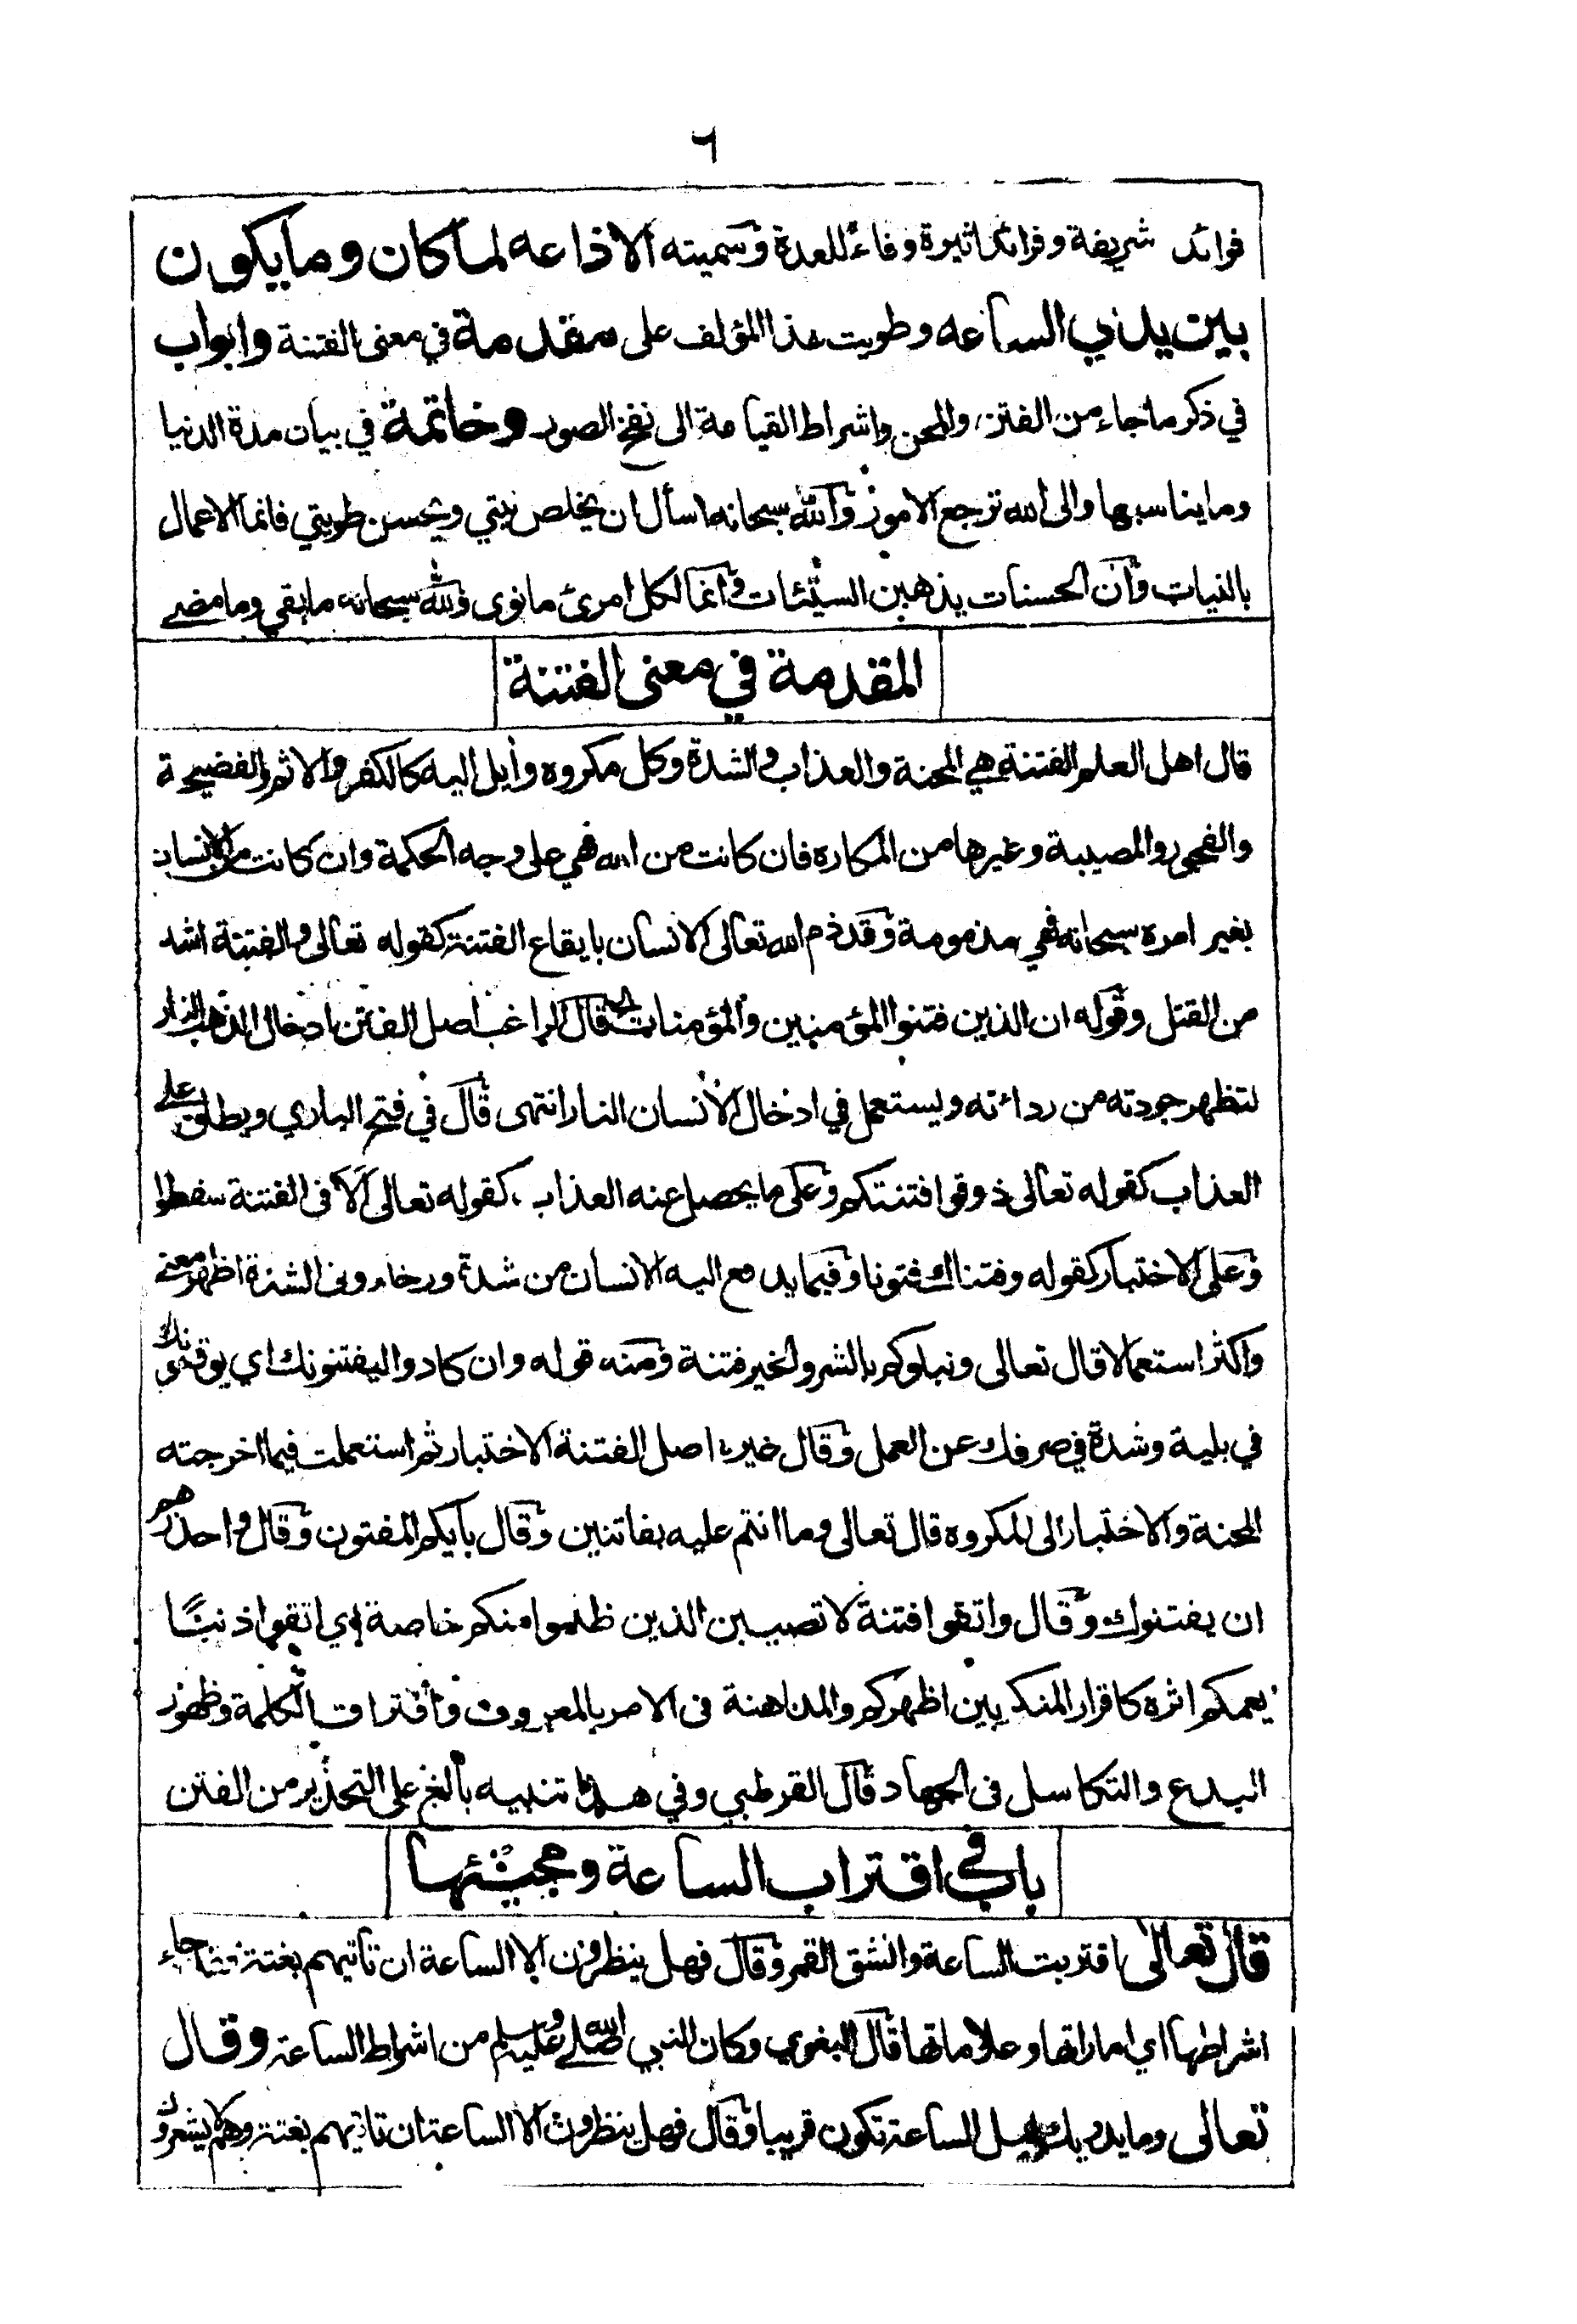 ٦
فوائد شريفة وفرائد اثيرة وفاء للعدة وسميته الاذاعه لما كان وما يكون
بين يدي الساعه وطويت هذا المؤلف على مقدمة في معنى الفتنة وابواب
في ذكر ما جاء من الفتن والمحن واشراط القيامة الى نفخ الصور وخاتمة في بيان مدة الدنيا
وما يناسبها والى الله ترجع الامور والله سبحانه اسأل ان يخلص نيتي ويحسن طويتي فانما الاعمال
بالنيات وان الحسنات يذهبن السيئات وانما لكل امرئ ما نوى ولله سبحانه ما بقي وما مضى
المقدمة في معنى الفتنة
قال اهل العلم الفتنة هي المحنة والعذاب والشدة وكل مكروه وأيل اليه كالكفر والاثم والفضيحة
والفجور والمصيبة وغيرها من المكاره فان كانت من الله فهي على وجه الحكمة وان كانت من الانسان
بغير امره سبحانه فهي مذمومة وقد ذم الله تعالى الانسان بايقاع الفتنة كقوله تعالى والفتنة اشد
من القتل وقوله ان الذين فتنوا المؤمنين والمؤمنات الخ قال الراغب اصل الفتن ادخال الذهب النار
لتظهر جودته من رداءته ويستعمل في ادخال الانسان النار انتهى قال في فتح الباري ويطلق على
العذاب كقوله تعالى ذوقوا فتنتكم وعلى ما يحصل عنه العذاب كقوله تعالى الا في الفتنة سقطوا
وعلى الاختبار كقوله وفتناك فتونا وفيما يدفع اليه الانسان من شدة ورخاء وفى الشدة اظهر معنى
واكثر استعمالا قال تعالى ونبلوكم بالشر والخير فتنة ومنه قوله وان كادوا ليفتنونك اي يوقعونك
في بلية وشدة في صرفك عن العمل وقال غيره اصل الفتنة الاختبار ثم استعملت فيما اخرجته
المحنة والاختبار الى المكروه قال تعالى وما انتم عليه بفاتنين وقال بأيكم المفتون وقال واحذرهم
ان يفتنوك وقال واتقوا فتنة لا تصيبن الذين ظلموا منكم خاصة اي اتقوا ذنبًا
يعمكم اثره كاقرار المنكر بين اظهركم والمداهنة فى الامر بالمعروف وافتراق الكلمة وظهور
البدع والتكاسل فى الجهاد قال القرطبي وفي هذا تنبيه بالغ على التحذير من الفتن
باب في اقتراب الساعة ومجيئها
قال تعالى اقتربت الساعة وانشق القمر وقال فهل ينظرون الا الساعة ان تأتيهم بغتة فقد جاء
اشراطها اي اماراتها وعلاماتها قال البغوي وكان النبي صلى الله عليه وسلم من اشراط الساعة وقال
تعالى وما يدريك لعل الساعة تكون قريبا وقال فهل ينظرون الا الساعة ان تاتيهم بغتة وهم لا يشعرون